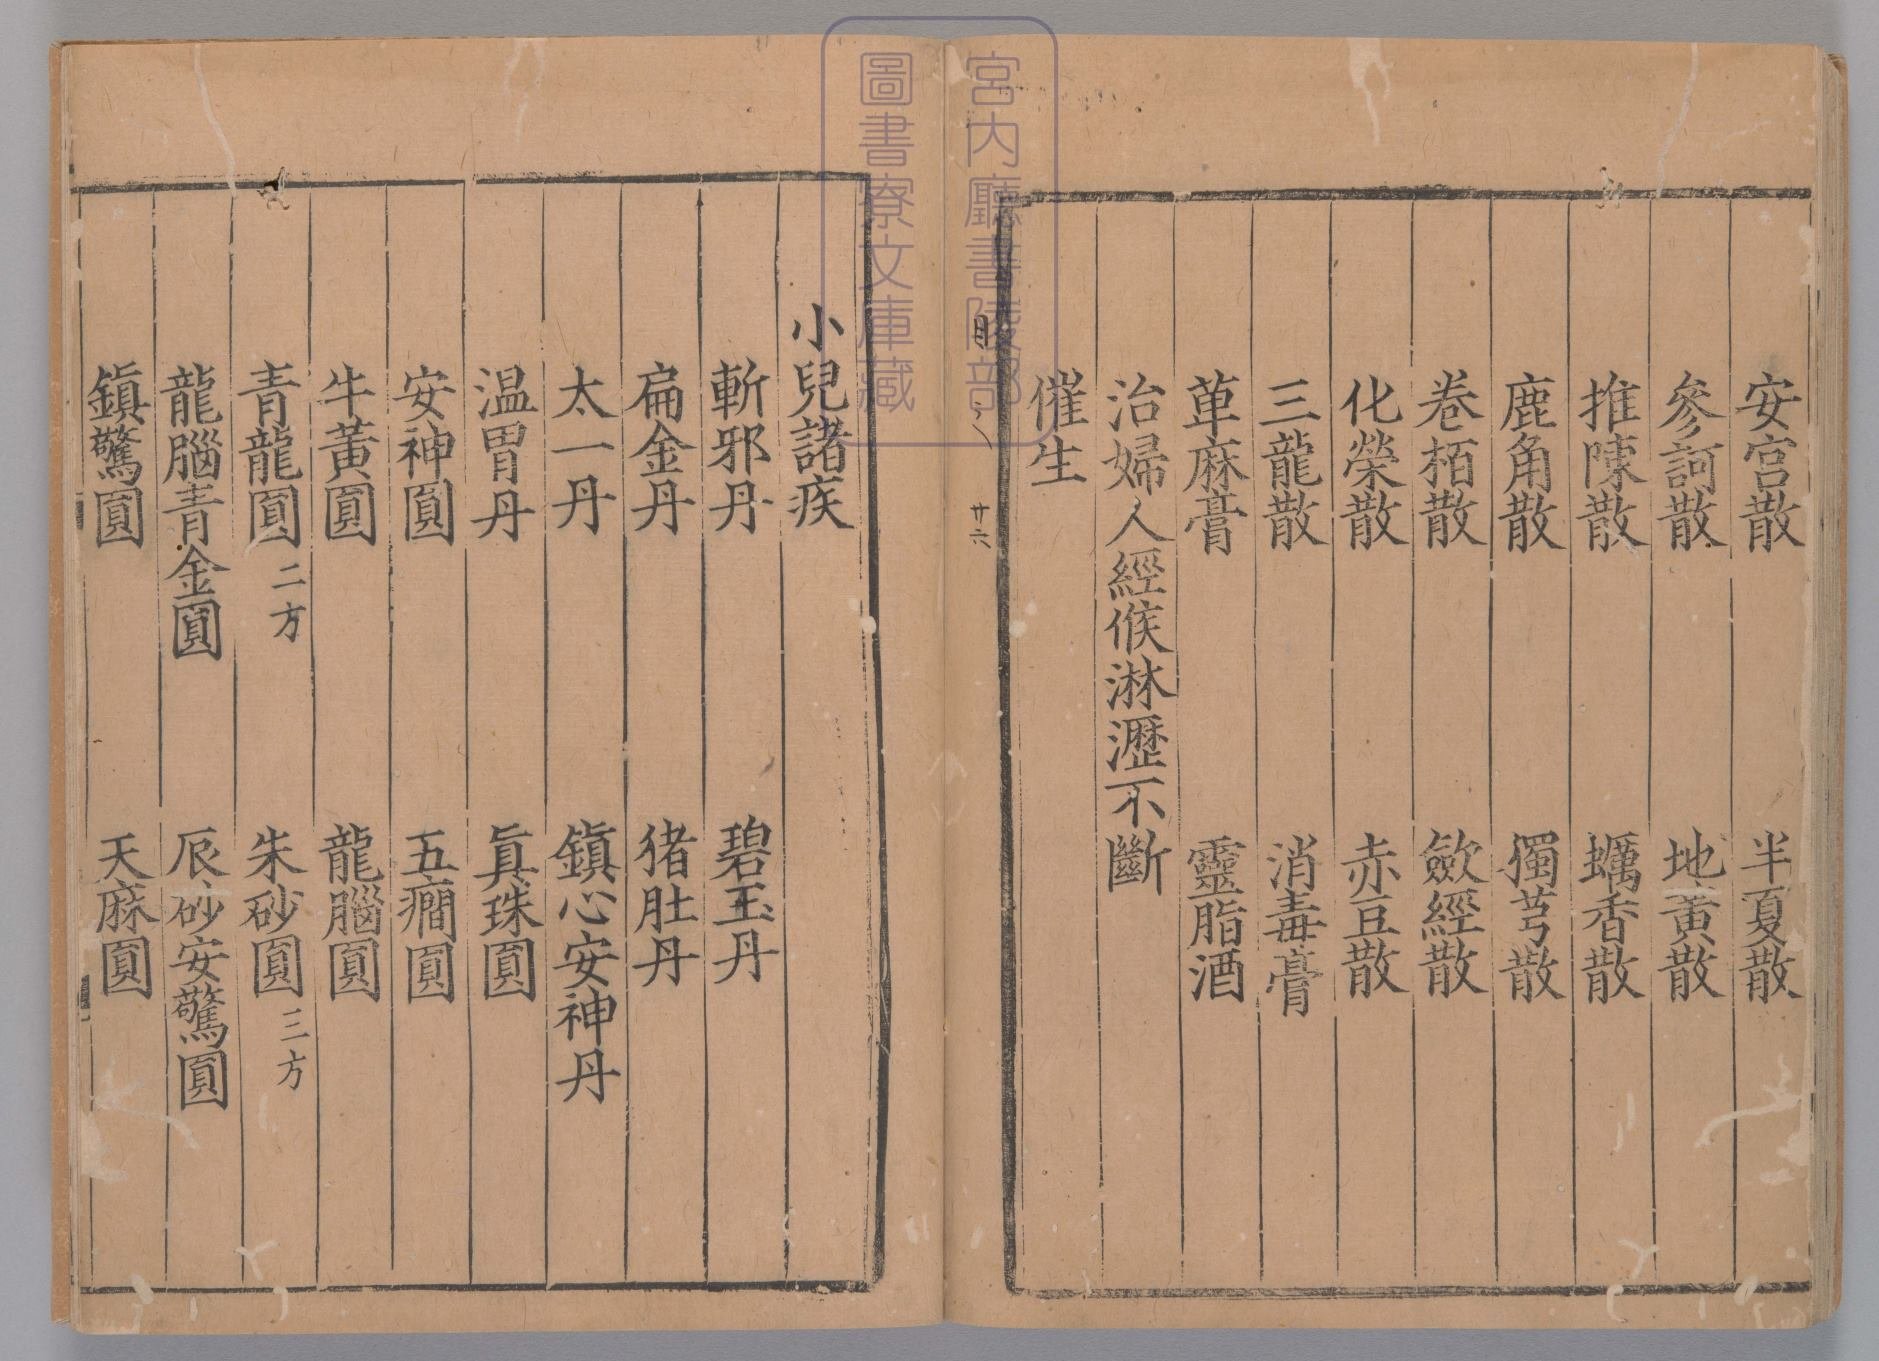 安宮散 半夏散
參訶散 地黃散
推陳散 蠣香散
鹿角散 獨芎散
卷栢散 歛經散
化榮散 赤豆散
三龍散 消毒膏
萆麻膏 靈脂酒
治婦人經候淋瀝不斷
催生
廿六
小兒諸疾
斬邪丹 碧玉丹
扁金丹 猪肚丹
太一丹 鎭心安神丹
温胃丹 眞珠圓
安神圓 五癇圓
牛黃圓 龍腦圓
青龍圓二方 朱砂圓三方
龍腦青金圓 辰砂安驚圓
鎭驚圓 天麻圓
宮内廳書陵部
圖書寮文庫藏